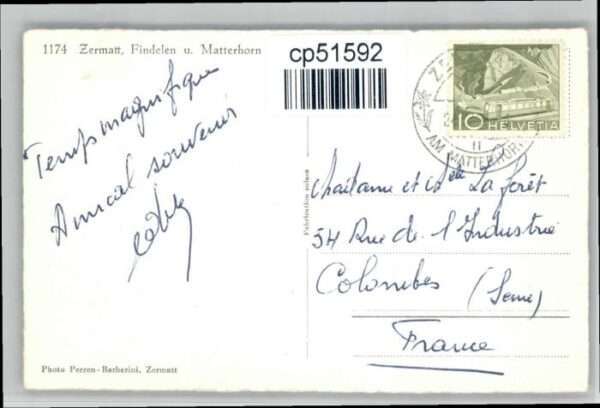 1174 Zermatt, Findelen u. Matterhorn
cp51592
10 HELVETIA
AM MATTERHORN
Temps magnifique
Amical souvenir
Fabrication suisse
et La forêt
54 Rue de l'Industrie
Colombes (Seine)
France
Photo Perren-Barberini, Zermatt